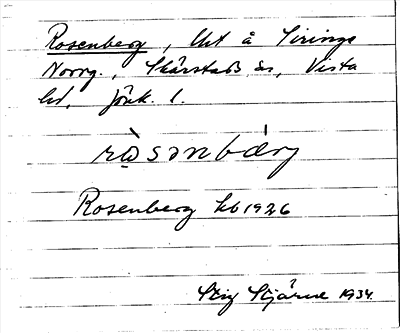 Rosenberg, lht å Siringe
Norrg., Skärstads sn, Vista
hd, Jönk. l.
ròsənbærj
Rosenberg kb 1926
Stig Stjärne 1934.